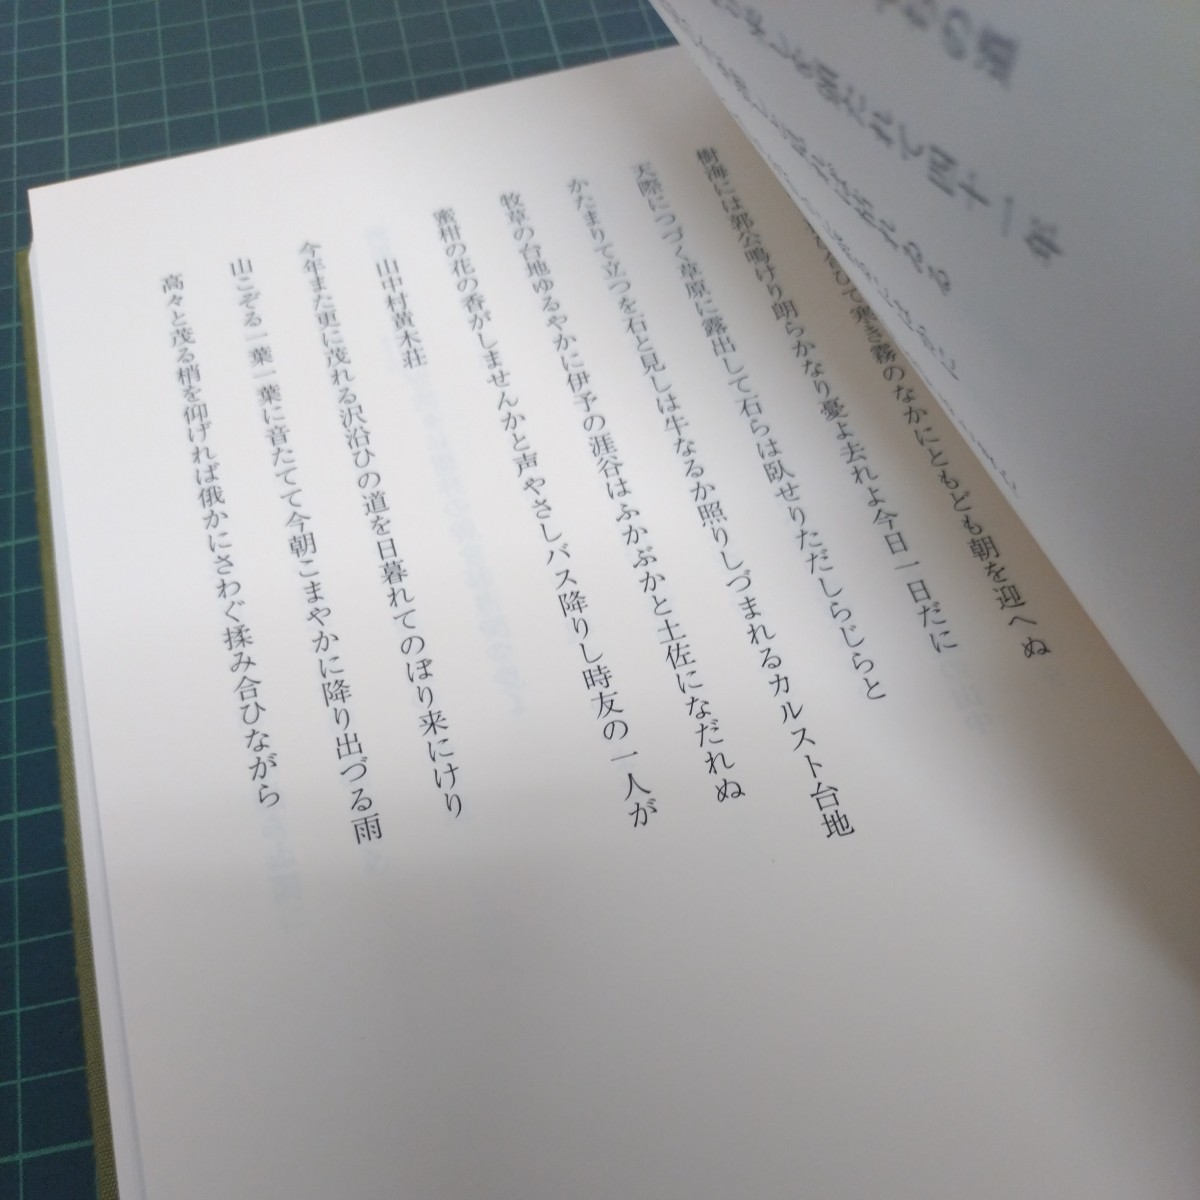 ひて寒き霧のなかにともども朝を迎へぬ
樹海には郭公鳴けり朗らかなり憂よ去れよ今日一日だに
天際につづく草原に露出して石らは臥せりただしらじらと
かたまりて立つを石と見しは牛なるか照りしづまれるカルスト台地
牧草の台地ゆるやかに伊予の涯谷はふかぶかと土佐になだれぬ
蜜柑の花の香がしませんかと声やさしバス降りし時友の一人が
山中村黄木荘
今年また更に茂れる沢沿ひの道を日暮れてのぼり来にけり
山こぞる一葉一葉に音たてて今朝こまやかに降り出づる雨
高々と茂る梢を仰げれば俄かにさわぐ揉み合ひながら